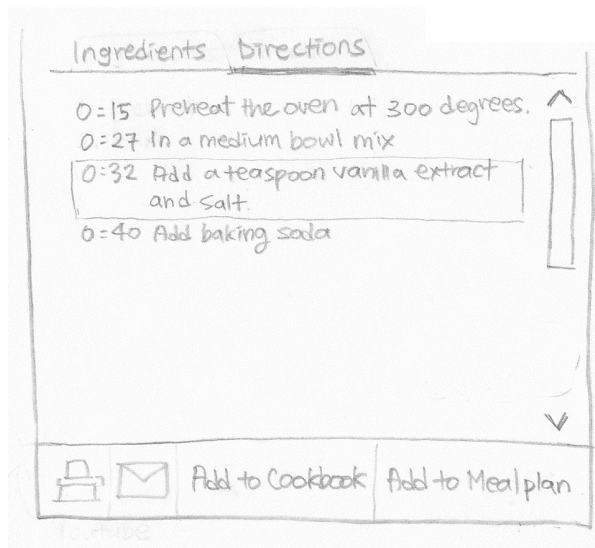 Ingredients Directions
0:15 Preheat the oven at 300 degrees.
0:27 In a medium bowl mix
0:32 Add a teaspoon vanilla extract
and salt.
0:40 Add baking soda
Add to Cookbook Add to Mealplan
Youtube